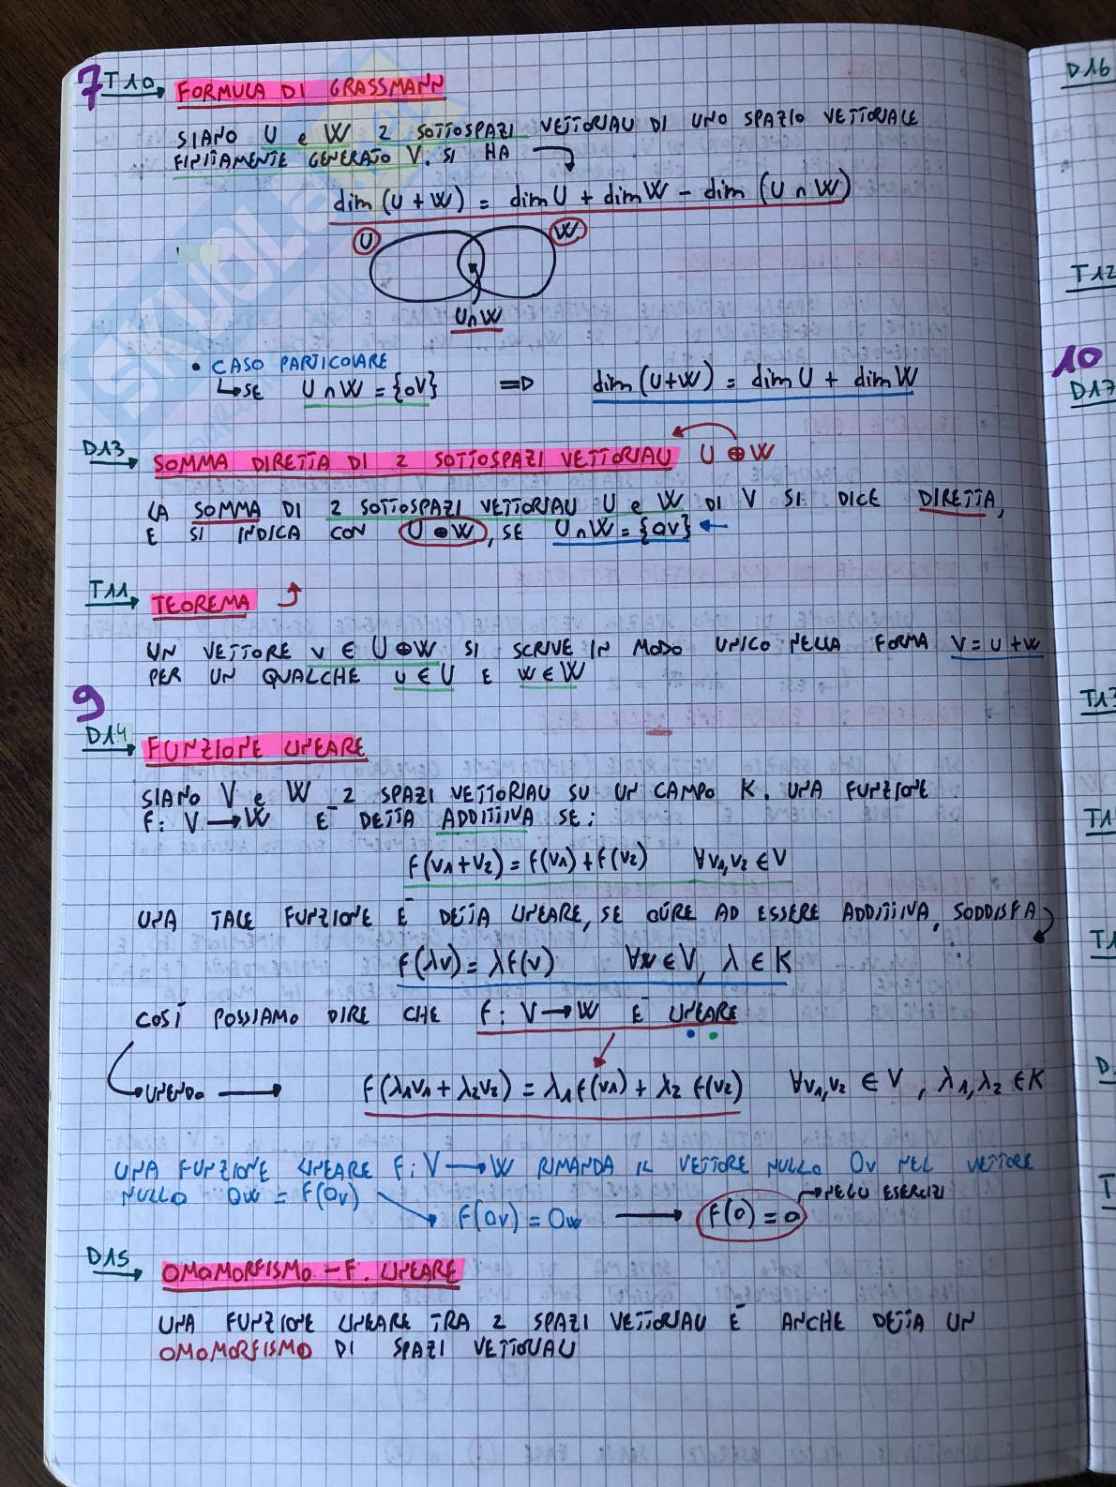 7 T10 FORMULA DI GRASSMANN
SIANO U e W 2 SOTTOSPAZI VETTORIALI DI UNO SPAZIO VETTORIALE
FINITAMENTE GENERATO V. SI HA
dim (U + W) = dim U + dim W - dim (U ∩ W)
U W
U∩W
• CASO PARTICOLARE
↳ SE U ∩ W = {0V} => dim (U+W) = dim U + dim W
D13 SOMMA DIRETTA DI 2 SOTTOSPAZI VETTORIALI U ⊕ W
LA SOMMA DI 2 SOTTOSPAZI VETTORIALI U e W DI V SI DICE DIRETTA,
E SI INDICA CON U ⊕ W, SE U ∩ W = {0V} ←
T11 TEOREMA
UN VETTORE v ∈ U ⊕ W SI SCRIVE IN MODO UNICO NELLA FORMA V = U + W
PER UN QUALCHE u ∈ U E w ∈ W
9
D14 FUNZIONE LINEARE
SIANO V e W 2 SPAZI VETTORIALI SU UN CAMPO K. UNA FUNZIONE
f: V → W È DETTA ADDITIVA SE:
f(v1+v2) = f(v1) + f(v2) ∀v1,v2 ∈ V
UNA TALE FUNZIONE È DETTA LINEARE, SE OLTRE AD ESSERE ADDITIVA, SODDISFA
f(λv) = λf(v) ∀v ∈ V, λ ∈ K
COSÌ POSSIAMO DIRE CHE f: V → W È LINEARE
UNENDO → f(λ1v1 + λ2v2) = λ1f(v1) + λ2 f(v2) ∀v1,v2 ∈ V, λ1,λ2 ∈ K
UNA FUNZIONE LINEARE f: V → W RIMANDA IL VETTORE NULLO 0v NEL VETTORE
NULLO 0w = f(0v) → NEGLI ESERCIZI
f(0v) = 0w → f(0) = 0
D15 OMOMORFISMO - F. LINEARE
UNA FUNZIONE LINEARE TRA 2 SPAZI VETTORIALI È ANCHE DETTA UN
OMOMORFISMO DI SPAZI VETTORIALI
D16
T12
10
D17
T13